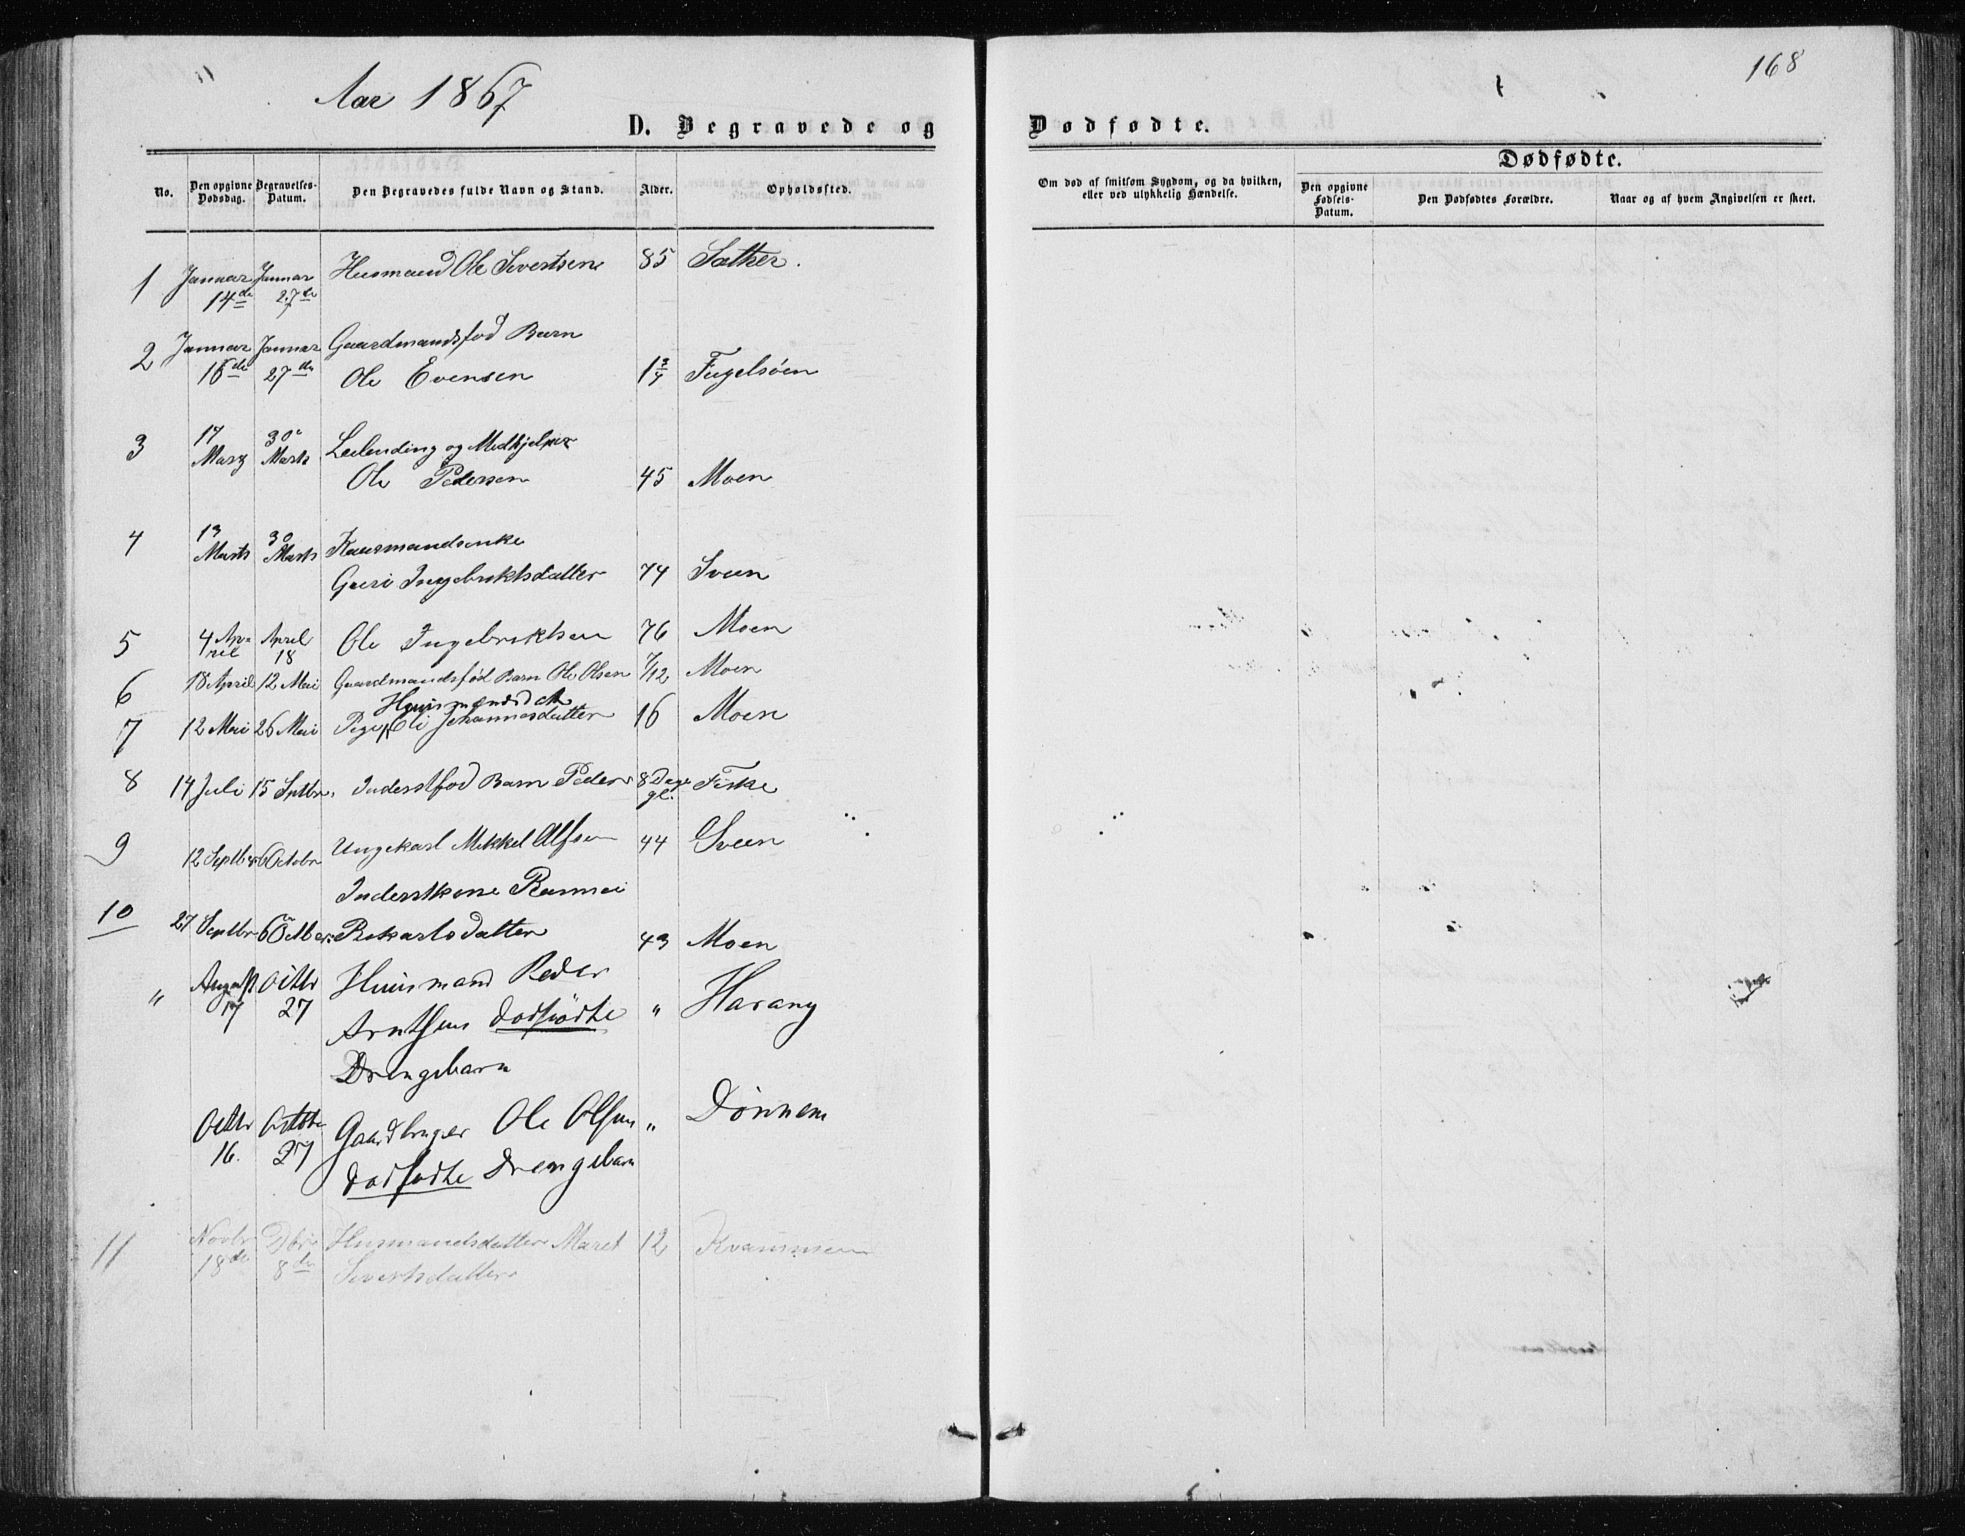 Aar 1867
168
D. Begravede og Dødfødte.
Dødfødte.
No.
Den opgivne Dødsdag.
Begravelses-Datum.
Den Begravedes fulde Navn og Stand.
Alder.
Opholdssted.
Om død af smitsom Sygdom, og da hvilken, eller ved ulykkelig Hændelse.
Den opgivne Fødsels-Datum.
Den Dødfødtes Forældre.
Naar og af hvem Angivelsen er skeet.
1 Januar 14de Januar 27de Husmand Ole Sivertsen 85 Sæther.
2 Januar 16de Januar 27de Gaardmandsfød Barn
Ole Evensen 1 3/4 Fugelsøen
3 17 Marz 30 Marts Leilending og Medhjelper
Ole Pedersen 45 Moen
4 13 Marts 30 Marts Kaarmandsenke
Guri Ingebriktsdatter 74 Sveen
5 4 April April 18 Ole Ingebriktsen 76 Moen
6 18 April 12 Mai Gaardmandsfød Barn Ole Olsen 7/12 Moen
Huusmandsd
7 12 Mai 26 Mai Pige Eli Johannesdatter 16 Moen
8 14 Juli 15 Septbr. Inderstfød Barn Peder 8 Dage gl. Fiske
9 12 Septbr 6 Octobr Ungekarl Mikkel Alfsen 44 Sveen
Inderstkone Rannei
10 27 Septbr 6 Octbr. Rikartsdatter 43 Moen
" August 17 Octbr 27 Huusmand Peder
Arntsens dødfødte " Harang
Drengebarn
Octbr 16. Octbr 27 Gaardbruger Ole Olsens " Dønnem
dødfødte Drengebarn
11 Novbr 18de Dbr 8de Husmandsdatter Maret 12 Kvammen
Sivertsdatter